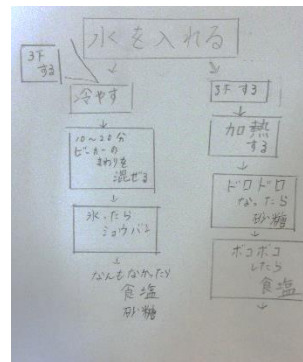 水を入れる
3下
する
冷やす
10〜20分
ビーカーの
まわりを
混ぜる
氷ったら
ショウバン
なんもなかったら
食塩
砂糖
3下する
加熱
する
ドロドロ
なったら
砂糖
ボコボコ
したら
食塩